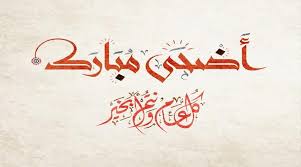 أضحى مبارك
كل عام وأنتم بخير